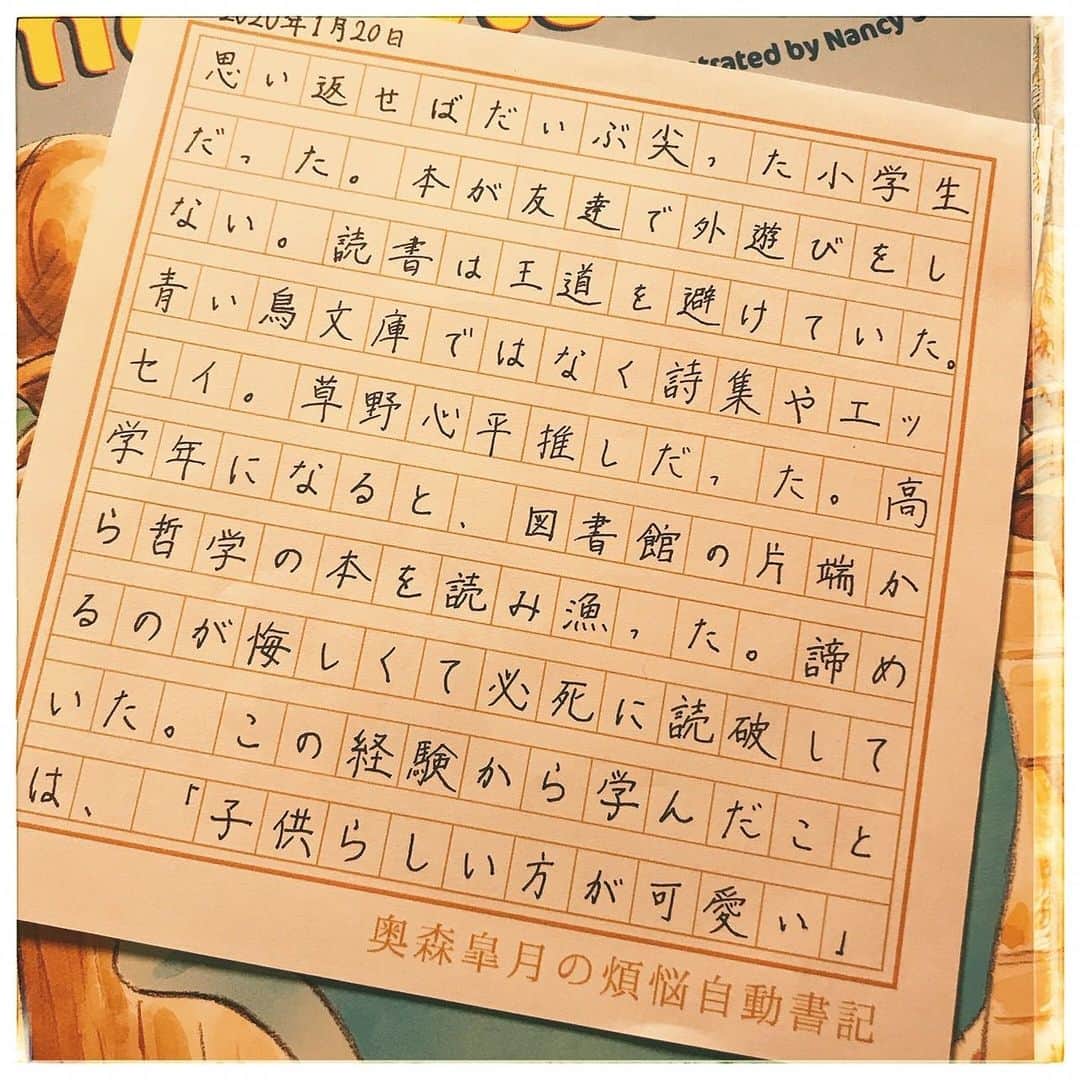 trated by Nancy
2020年1月20日
思い返せばだいぶ尖った小学生
だった。本が友達で外遊びをし
ない。読書は王道を避けていた。
青い鳥文庫ではなく詩集やエッ
セイ。草野心平推しだった。高
学年になると、図書館の片端か
ら哲学の本を読み漁った。諦め
るのが悔しくて必死に読破して
いた。この経験から学んだこと
は、「子供らしい方が可愛い」
奥森皐月の煩悩自動書記